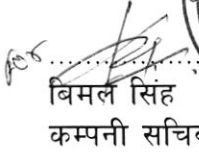 बिमल सिंह
कम्पनी सचिव